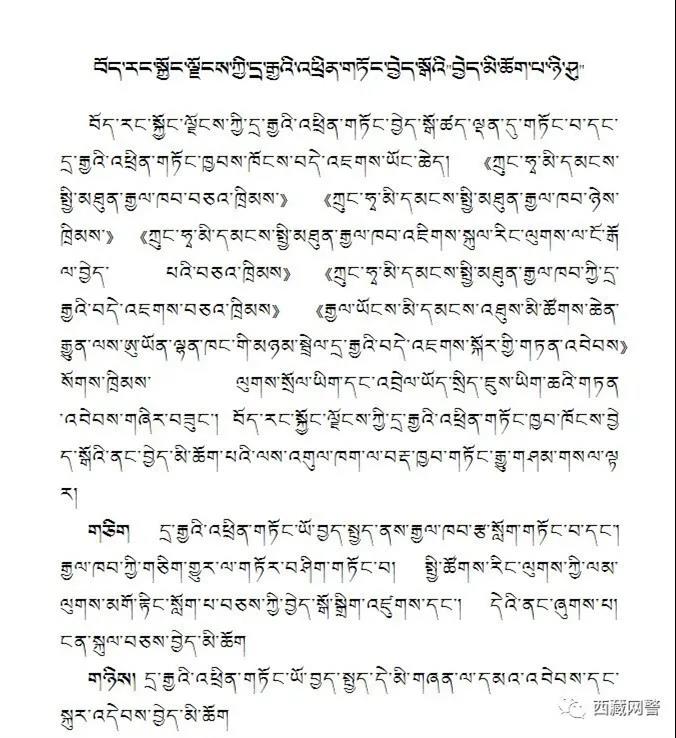 བོད་རང་སྐྱོང་ལྗོངས་ཀྱི་དྲ་རྒྱའི་འཕྲིན་གཏོང་བྱེད་སྒོའི"བྱེད་མི་ཆོག་པ་ཉི་ཤུ"
བོད་རང་སྐྱོང་ལྗོངས་ཀྱི་དྲ་རྒྱའི་འཕྲིན་གཏོང་བྱེད་སྒོ་ཚད་ལྡན་དུ་གཏོང་བ་དང་
དྲ་རྒྱའི་འཕྲིན་གཏོང་ཁྱབས་ཁོངས་བདེ་འཇགས་ཡོང་ཆེད། 《ཀྲུང་ཧྭ་མི་དམངས་
སྤྱི་མཐུན་རྒྱལ་ཁབ་བཅའ་ཁྲིམས་》 《ཀྲུང་ཧྭ་མི་དམངས་སྤྱི་མཐུན་རྒྱལ་ཁབ་ཉེས་
ཁྲིམས་》 《ཀྲུང་ཧྭ་མི་དམངས་སྤྱི་མཐུན་རྒྱལ་ཁབ་འཇིགས་སྐུལ་རིང་ལུགས་ལ་ངོ་རྒོ
ལ་བྱེད་ པའི་བཅའ་ཁྲིམས》 《ཀྲུང་ཧྭ་མི་དམངས་སྤྱི་མཐུན་རྒྱལ་ཁབ་ཀྱི་དྲ་
རྒྱའི་བདེ་འཇགས་བཅའ་ཁྲིམས》 《རྒྱལ་ཡོངས་མི་དམངས་འཐུས་མི་ཚོགས་ཆེན་
རྒྱུན་ལས་ཨུ་ཡོན་ལྷན་ཁང་གི་མཉམ་སྦྲེལ་དྲ་རྒྱའི་བདེ་འཇགས་སྐོར་གྱི་གཏན་འབེབས》
སོགས་ཁྲིམས་ ལུགས་སྲོལ་ཡིག་དང་འབྲེལ་ཡོད་སྲིད་ཇུས་ཡིག་ཆའི་གཏན
་འབེབས་གཞིར་བཟུང་། བོད་རང་སྐྱོང་ལྗོངས་ཀྱི་དྲ་རྒྱའི་འཕྲིན་གཏོང་ཁྱབ་ཁོངས་བྱེ
ད་སྒོའི་ནང་བྱེད་མི་ཆོག་པའི་ལས་འགུལ་ཁག་ལ་བརྡ་ཁྱབ་གཏོང་རྒྱུ་གཤམ་གསལ་ལྟ
ར།
གཅིག དྲ་རྒྱའི་འཕྲིན་གཏོང་ཡོ་བྱད་སྤྱད་ནས་རྒྱལ་ཁབ་རྩ་སློག་གཏོང་བ་དང་།
རྒྱལ་ཁབ་ཀྱི་གཅིག་གྱུར་ལ་གཏོར་བཤིག་གཏོང་བ། སྤྱི་ཚོགས་རིང་ལུགས་ཀྱི་ལམ་
ལུགས་མགོ་རྟིང་སློག་པ་བཅས་ཀྱི་བྱེད་སྒོ་སྒྲིག་འཛུགས་དང་། དེའི་ནང་ཞུགས་པ།
ངན་སྐུལ་བཅས་བྱེད་མི་ཆོག
གཉིས། དྲ་རྒྱའི་འཕྲིན་གཏོང་ཡོ་བྱད་སྤྱད་དེ་མི་གཞན་ལ་དམའ་འབེབས་དང་
སྐུར་འདེབས་བྱེད་མི་ཆོག
西藏网警